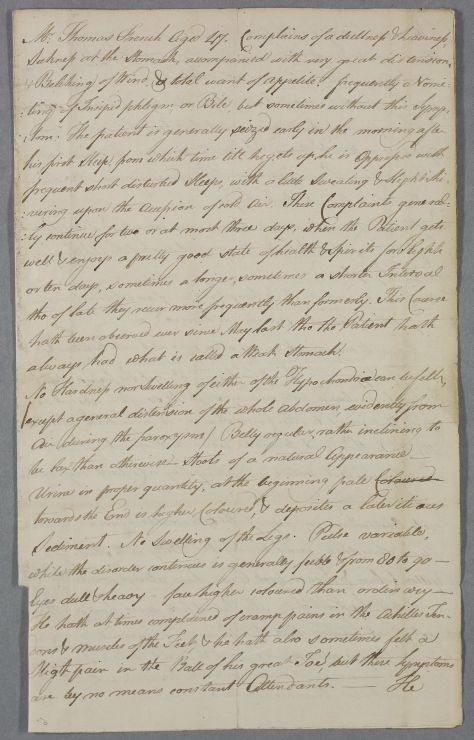 Mr. Thomas French Aged 47. Complains of a dullness & heaviness,
Sickness at the Stomach, accompanied with very great distension,
& Belching of Wind, & total want of appetite. frequently a Vomi-
:ting of Insipid phlegm or Bile, but sometimes without this Symp-
:tom. The patient is generally seized early in the morning after
his first Sleep, from which time till he gets up, he is Oppress'd with
frequent short disturbed Sleeps, with a little Sweating & slight Shi-
:vering upon the accession of cold Air. These Complaints general-
:ly continue for two or at most three days, when the Patient gets
well & enjoys a pretty good state of health & Spirits for Eight
or ten days, sometimes a longer, sometimes a shorter Interval
tho of late they recur more frequently than formerly. This Course
hath been observed ever since May last tho the Patient hath
always had what is called a Weak Stomach.
No Hardness nor Swelling of either of the Hypochondria can be felt,
(except a general distension of the whole Abdomen evidently from
Air during the paroxysm) Belly regular, rather inclining to
be lax than otherwise – Stools of a natural Appearance
Urine in proper quantity, at the beginning pale Coloured
towards the End is higher Coloured, & deposites a Lateritious
Sediment. No Swelling of the Legs. Pulse variable,
while the disorder continues is generally feeble & from 80 to 90 –
Eyes dull & heavy – face higher coloured than ordinary –
He hath at times complained of cramp pains in the Achilles Ten-
:dons & muscles of the Feet, & he hath also sometimes felt a
Slight pain in the Ball of his great Toe, but these Symptoms
are by no means constant Attendants. — He